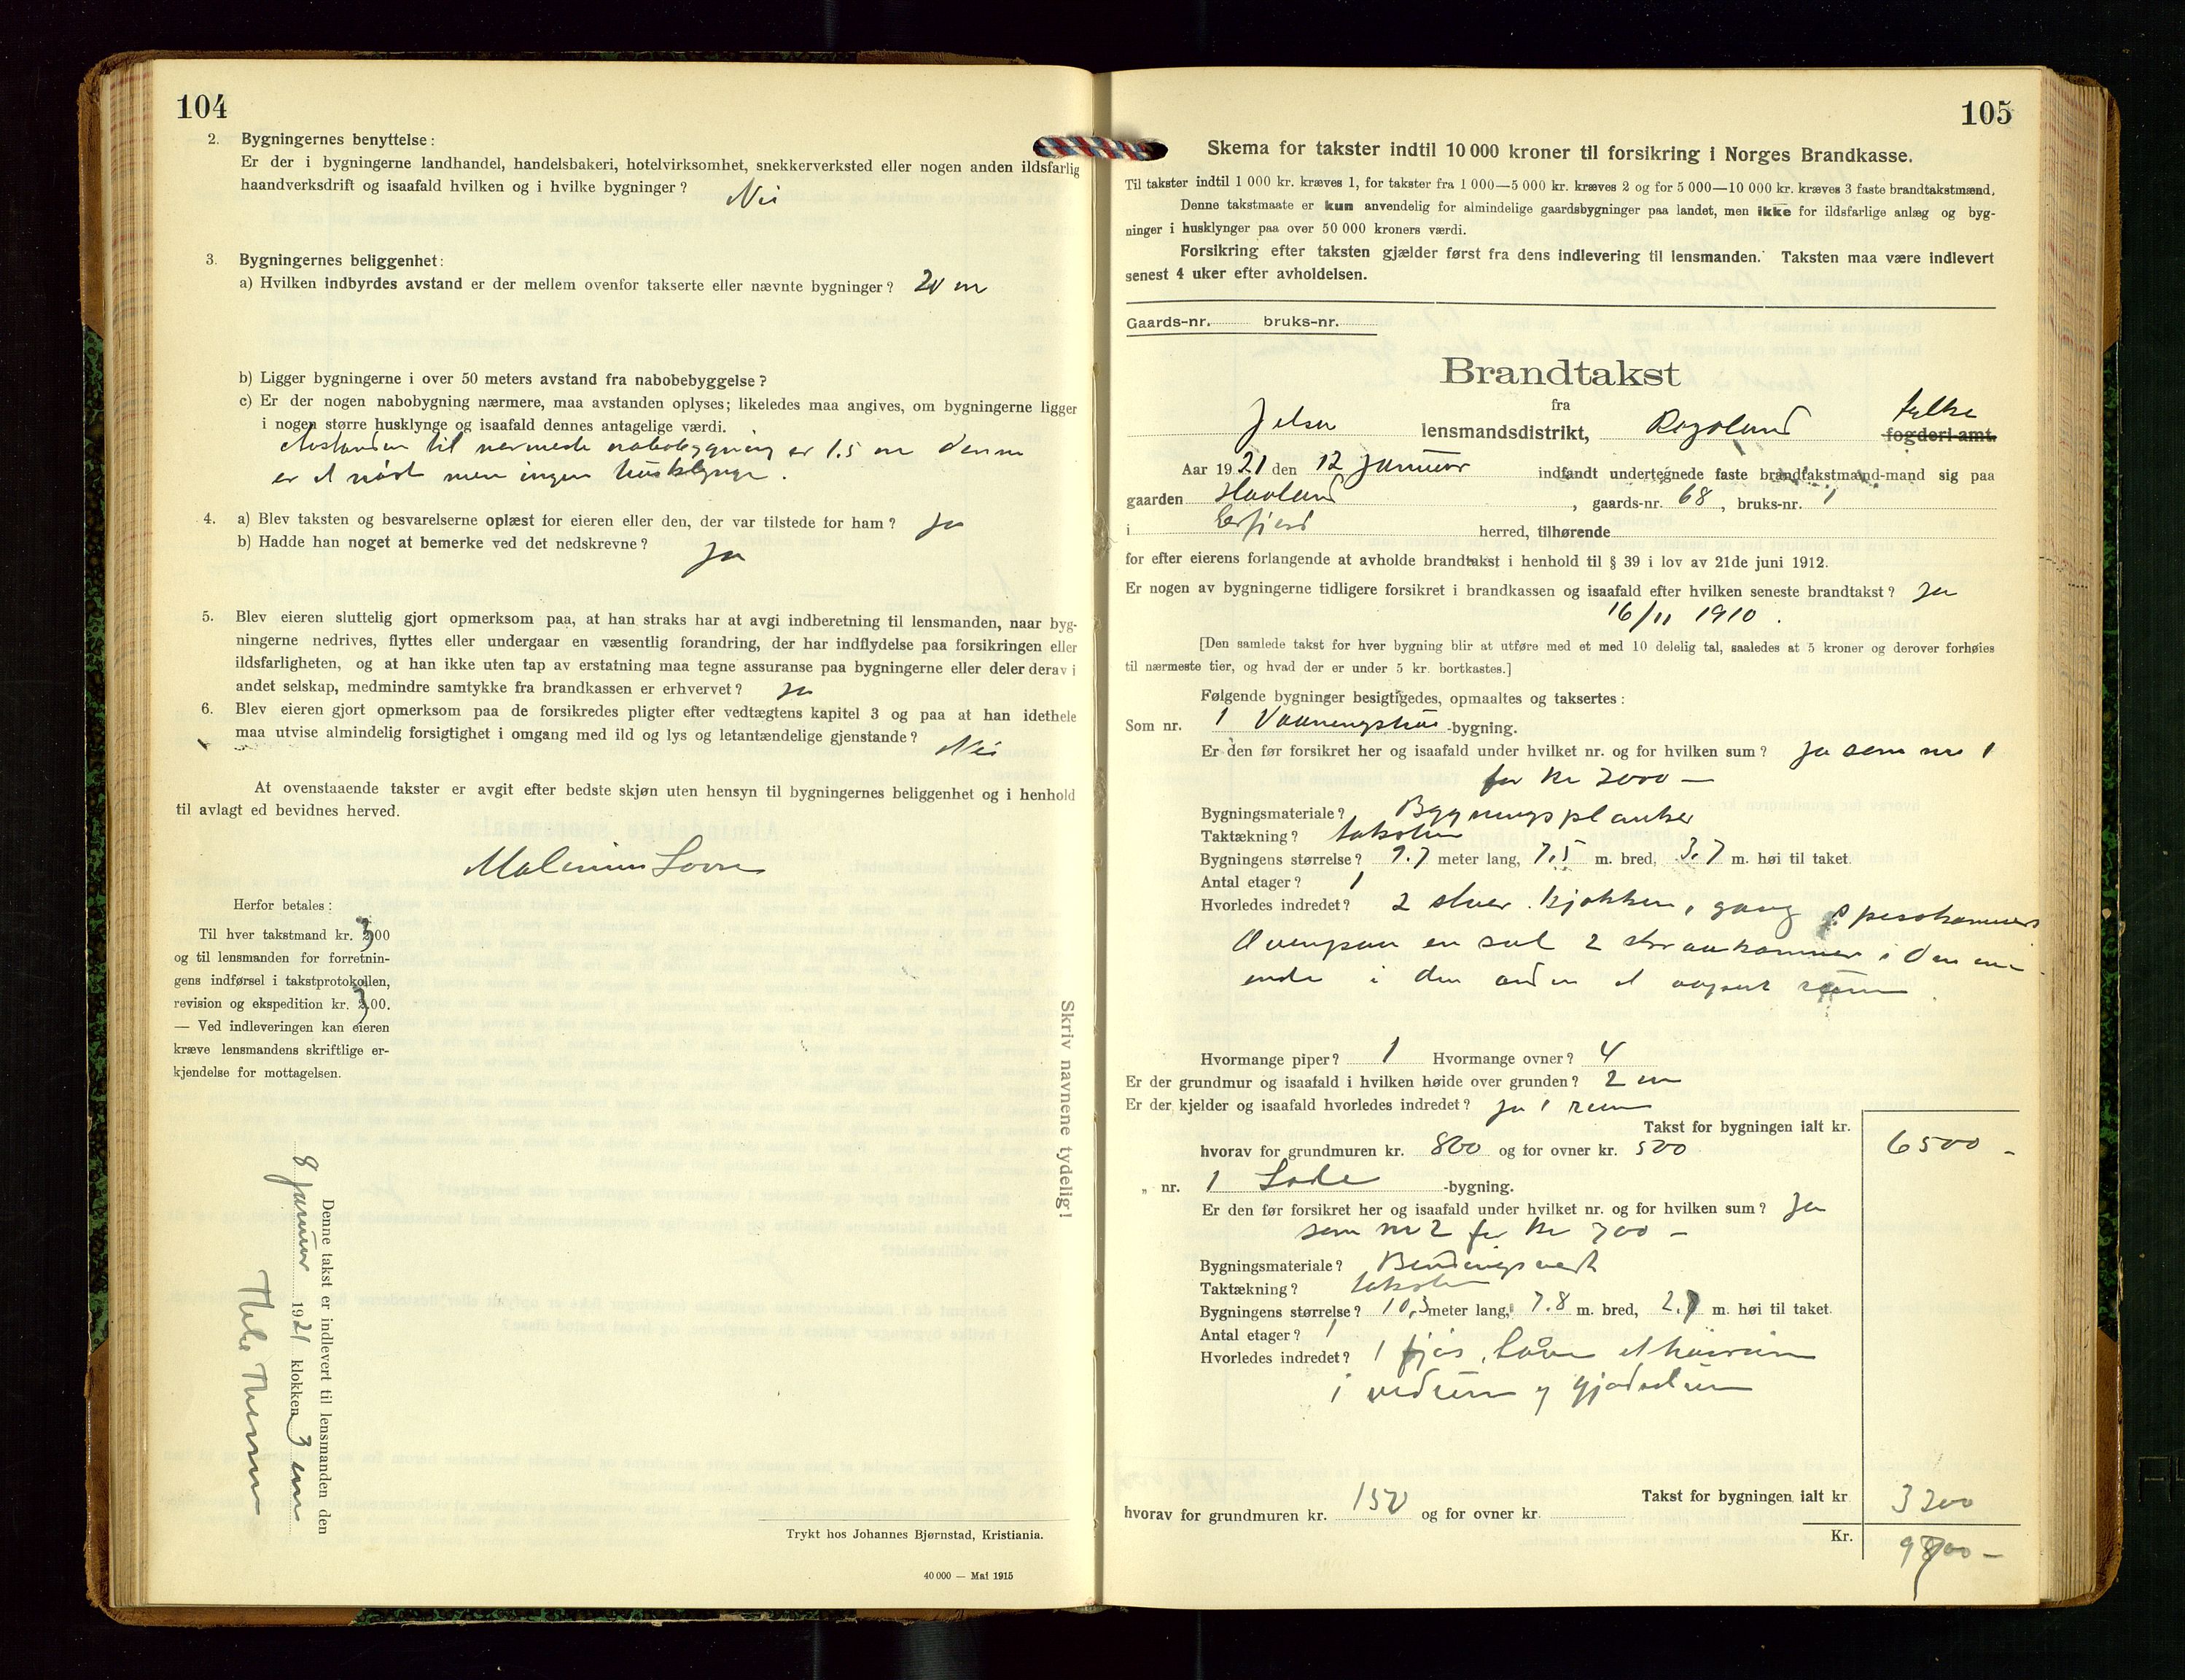 104
2. Bygningernes benyttelse:
Er der i bygningerne landhandel, handelsbakeri, hotelvirksomhet, snekkerverksted eller nogen anden ildsfarlig
haandverksdrift og isaafald hvilken og i hvilke bygninger? Nei
3. Bygningernes beliggenhet:
a) Hvilken indbyrdes avstand er der mellem ovenfor takserte eller nævnte bygninger? 20 m
b) Ligger bygningerne i over 50 meters avstand fra nabobebyggelse?
c) Er der nogen nabobygning nærmere, maa avstanden oplyses; likeledes maa angives, om bygningerne ligger
i nogen større husklynge og isaafald dennes antagelige værdi.
Avstanden til nærmeste nabobygning er 1.5 m denne
er et nøst men ingen husklynge.
4. a) Blev taksten og besvarelserne oplæst for eieren eller den, der var tilstede for ham? Ja
b) Hadde han noget at bemerke ved det nedskrevne? Ja
5. Blev eieren sluttelig gjort opmerksom paa, at han straks har at avgi indberetning til lensmanden, naar byg-
ningerne nedrives, flyttes eller undergaar en væsentlig forandring, der har indflydelse paa forsikringen eller
ildsfarligheten, og at han ikke uten tap av erstatning maa tegne assuranse paa bygningerne eller deler derav i
andet selskap, medmindre samtykke fra brandkassen er erhvervet? Ja
6. Blev eieren gjort opmerksom paa de forsikredes pligter efter vedtægtens kapitel 3 og paa at han idethele
maa utvise almindelig forsigtighet i omgang med ild og lys og letantændelige gjenstande? Nei
At ovenstaaende takster er avgit efter bedste skjøn uten hensyn til bygningernes beliggenhet og i henhold
til avlagt ed bevidnes herved.
Herfor betales:
Til hver takstmand kr. 3.00
og til lensmanden for forretnin-
gens indførsel i takstprotokollen,
revision og ekspedition kr. 3.00.
— Ved indleveringen kan eieren
kræve lensmandens skriftlige er-
kjendelse for mottagelsen.
Denne takst er indlevert til lensmanden den
8 Januar 1921 klokken 3 em
Skriv navnene tydelig!
Trykt hos Johannes Bjørnstad, Kristiania.
40 000 — Mai 1915
105
Skema for takster indtil 10 000 kroner til forsikring i Norges Brandkasse.
Til takster indtil 1 000 kr. kræves 1, for takster fra 1 000—5 000 kr. kræves 2 og for 5 000—10 000 kr. kræves 3 faste brandtakstmænd,
Denne takstmaate er kun anvendelig for almindelige gaardsbygninger paa landet, men ikke for ildsfarlige anlæg og byg-
ninger i husklynger paa over 50 000 kroners værdi.
Forsikring efter taksten gjælder først fra dens indlevering til lensmanden. Taksten maa være indlevert
senest 4 uker efter avholdelsen.
Gaards-nr. bruks-nr.
Brandtakst
fra
Jelsa lensmandsdistrikt, Rogaland fylke fogderi-amt.
Aar 1921 den 12 Januar indfandt undertegnede faste brandtakstmænd-mand sig paa
gaarden Havland, gaards-nr. 68, bruks-nr. 1
i Erfjord herred, tilhørende
for efter eierens forlangende at avholde brandtakst i henhold til § 39 i lov av 21de juni 1912.
Er nogen av bygningerne tidligere forsikret i brandkassen og isaafald efter hvilken seneste brandtakst? Ja
16/11 1910.
[Den samlede takst for hver bygning blir at utføre med et med 10 delelig tal, saaledes at 5 kroner og derover forhøies
til nærmeste tier, og hvad der er under 5 kr. bortkastes.]
Følgende bygninger besigtigedes, opmaaltes og taksertes:
Som nr. 1 Vaaningshus -bygning.
Er den før forsikret her og isaafald under hvilket nr. og for hvilken sum? Ja som nr 1
for kr 2000 —
Bygningsmateriale? Bygningsplanker
Taktækning? taksten
Bygningens størrelse? 9.7 meter lang, 7.5 m. bred, 3.7 m. høi til taket.
Antal etager? 1
Hvorledes indredet? 2 stuer. kjøkken, gang spisekammers
Ovenpaa en sal 2 smaakammer i den ene
ende i den anden et aapent rum
Hvormange piper? 1 Hvormange ovner? 4
Er der grundmur og isaafald i hvilken høide over grunden? 2 m
Er der kjelder og isaafald hvorledes indredet? Ja 1 rum
Takst for bygningen ialt kr.
hvorav for grundmuren kr. 800 og for ovner kr. 500 6500 -
„ nr. 1 Lade -bygning.
Er den før forsikret her og isaafald under hvilket nr. og for hvilken sum? Ja
som nr 2 for kr 700 —
Bygningsmateriale? Bindingsverk
Taktækning? taksten
Bygningens størrelse? 10.3 meter lang, 7.8 m. bred, 2.7 m. høi til taket.
Antal etager? 1
Hvorledes indredet? 1 fjøs, låve et høirum
1 vedrum og gjødselrum
Takst for bygningen ialt kr 3200
hvorav for grundmuren kr. 150 og for ovner kr.
Kr. 9700 —